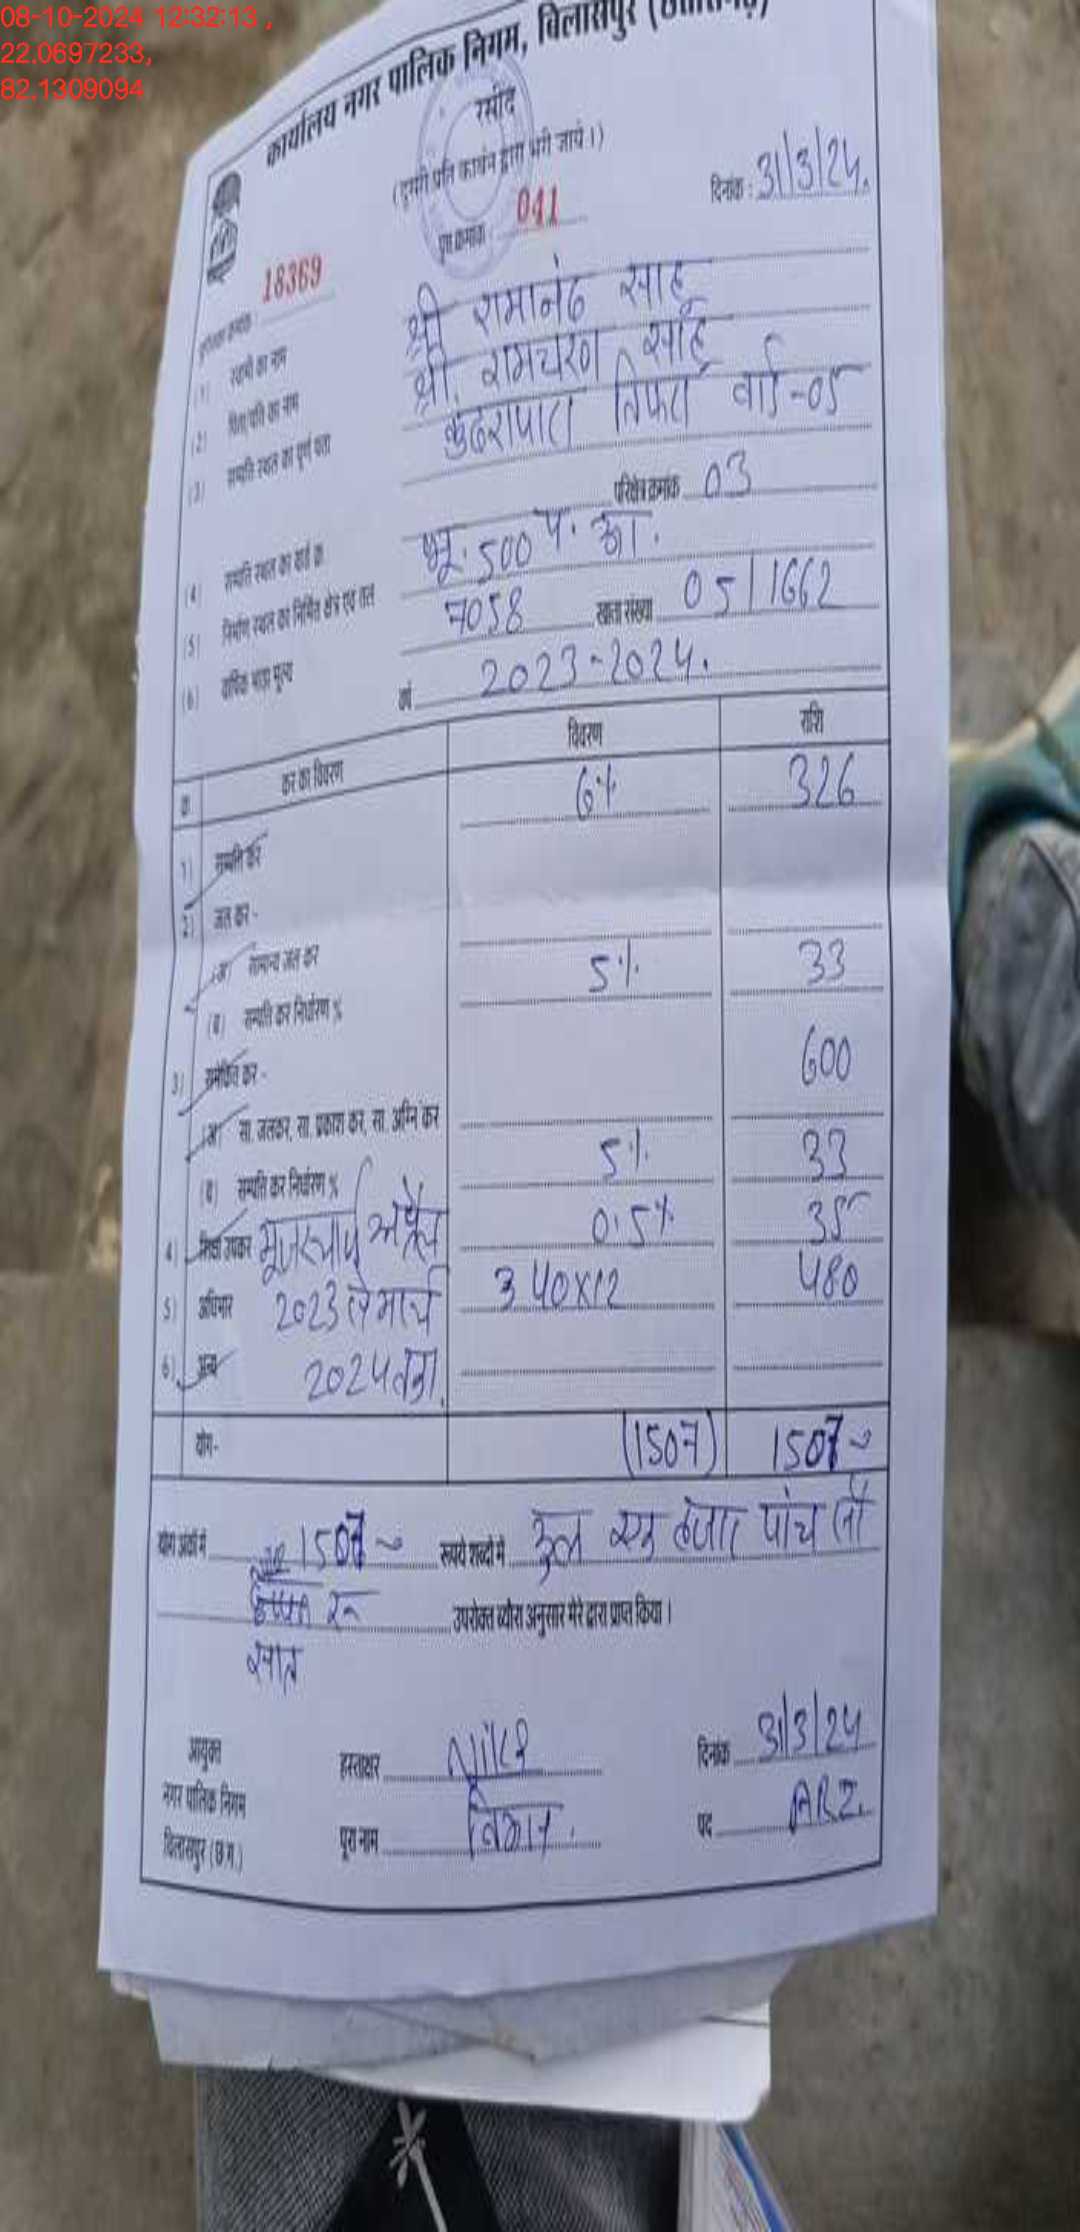 08-10-2024 12:32:13 ,
22.0697233,
82.1309094
कार्यालय नगर पालिक निगम, बिलासपुर (छत्तीसगढ़)
रसीद
(दूसरी प्रति कार्बन द्वारा भरी जाये।)
पृष्ठ क्रमांक : 041
दिनांक : 31/3/24.
18369
(1) स्वामी का नाम श्री रामानंद साहू
(2) पिता/पति का नाम श्री. रामचरण साहू
(3) सम्पत्ति स्थल का पूर्ण पता कुदरापारा तिफरा वार्ड-05
(4) सम्पत्ति स्थल का वार्ड क्र. परिक्षेत्र क्रमांक 03
(5) निर्माण स्थल का निर्मित क्षेत्र एवं तल भू. 500 प. आ.
(6) वार्षिक भाड़ा मूल्य 7058 खाता संख्या 05/1662
वर्ष 2023-2024.
क्र. कर का विवरण विवरण राशि
1) सम्पत्ति कर 6% 326
2) जल कर -
(अ) सामान्य जल कर
(ब) सम्पत्ति कर निर्धारण % 5% 33
3) समेकित कर -
(अ) सा. जलकर, सा. प्रकाश कर, सा. अग्नि कर 600
(ब) सम्पत्ति कर निर्धारण % 5% 33
4) शिक्षा उपकर 0.5% 35
5) अधिभार 2023 से मार्च 3 40x12 480
6) अन्य 2024 तक.
योग- (1507) 1507
योग अंकों में 1507 रूपये शब्दों में कुल एक हजार पांच सौ
सात रू उपरोक्त ब्यौरा अनुसार मेरे द्वारा प्राप्त किया ।
आयुक्त
नगर पालिक निगम
बिलासपुर (छ.ग.)
हस्ताक्षर
दिनांक 31/3/24
पूरा नाम
पद ARI.